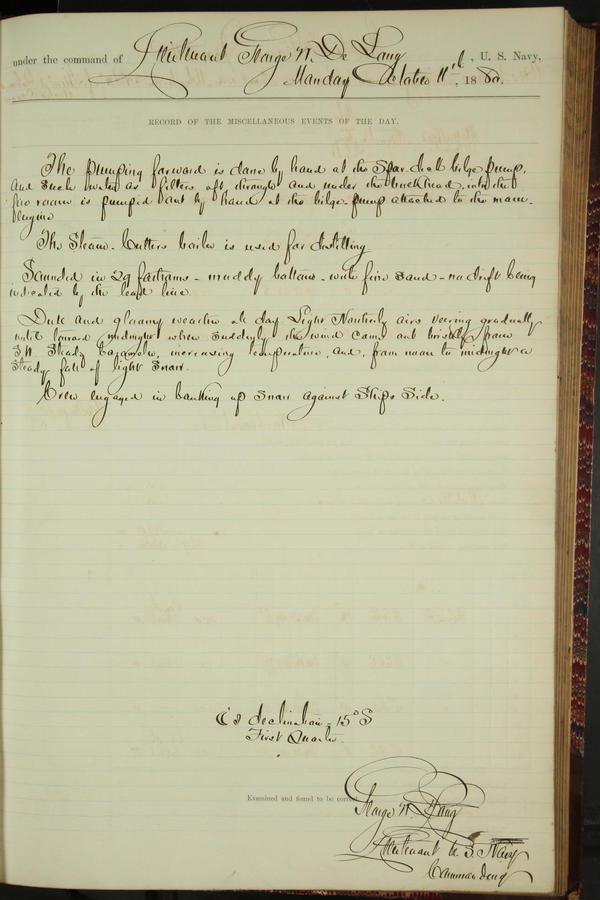 under the command of Lieutenant George W. De Long, U. S. Navy,
Monday October 11th, 1880.
RECORD OF THE MISCELLANEOUS EVENTS OF THE DAY.
The pumping forward is done by hand at the Spar deck bilge pump,
and such water as filters aft through and under the bulkhead into the
fire room is pumped out by hand at the bilge-pump attached to the main
Engine
The Steam-Cutters boiler is used for distilling
Sounded in 29 fathoms - muddy bottom - with fine sand - no drift being
indicated by the lead line.
Dull and gloomy weather all day Light Northerly airs veering gradually
until toward midnight when suddenly the wind came out briskly from
SW Steady barometer, increasing temperature, and, from noon to midnight a
steady fall of light snow.
Crew engaged in banking up snow against Ships Side.
declination - 15° S
First Quarter.
Examined and found to be correct
George W. De Long
Lieutenant U. S. Navy
Commanding